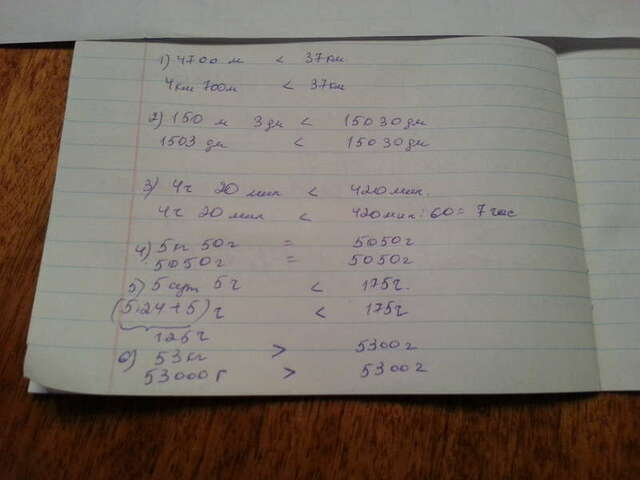 1) 4700 м < 37км
4км 700м < 37км
2) 150 м 3дм < 15030дм
1503 дм < 15030дм
3) 4ч 20 мин < 420мин.
4ч 20 мин < 420мин:60= 7час
4) 5кг 50г = 5050г
5050г = 5050г
5) 5сут 5ч < 175ч.
(5·24+5)ч < 175ч
125ч
6) 53кг > 5300г
53000г > 5300г